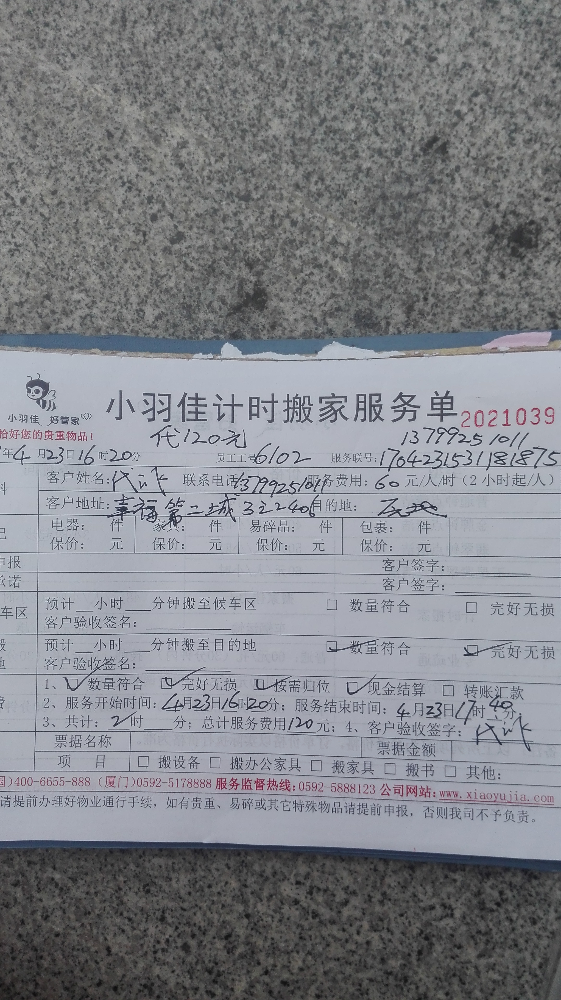 小羽佳 好管家
小羽佳计时搬家服务单 2021039
恰好您的贵重物品!
代120元 13799251011
年4月23日16时20分 员工工号6102 服务联号:1704231531181875
客户姓名: 联系电话13799251011 服务费用:60元/人/时(2小时起/人)
客户地址: 第二城3224 目的地:
电器: 件 家具: 件 易碎品: 件 包裹: 件
保价: 元 保价: 元 保价: 元 保价: 元
申报 客户签字:
承诺 客户签字:
车区 预计__小时___分钟搬至候车区 □ 数量符合 □ 完好无损
客户验收签名:
预计__小时___分钟搬至目的地 ☑ 数量符合 ☑ 完好无损
地 客户验收签名:
1、☑ 数量符合 ☑ 完好无损 ☑ 按需归位 ☑ 现金结算 □ 转账汇款
2、服务开始时间:4月23日16时20分;服务结束时间:4月23日17时40分;
3、共计:2时 分;总计服务费用120元;4、客户验收签字:
票据名称 票据金额
项 目 □ 搬设备 □ 搬办公家具 □ 搬家具 □ 搬书 □ 其他:
国)400-6655-888 (厦门)0592-5178888 服务监督热线:0592-5888123 公司网站:www.xiaoyujia.com
请提前办理好物业通行手续,如有贵重、易碎或其它特殊物品请提前申报,否则我司不予负责。